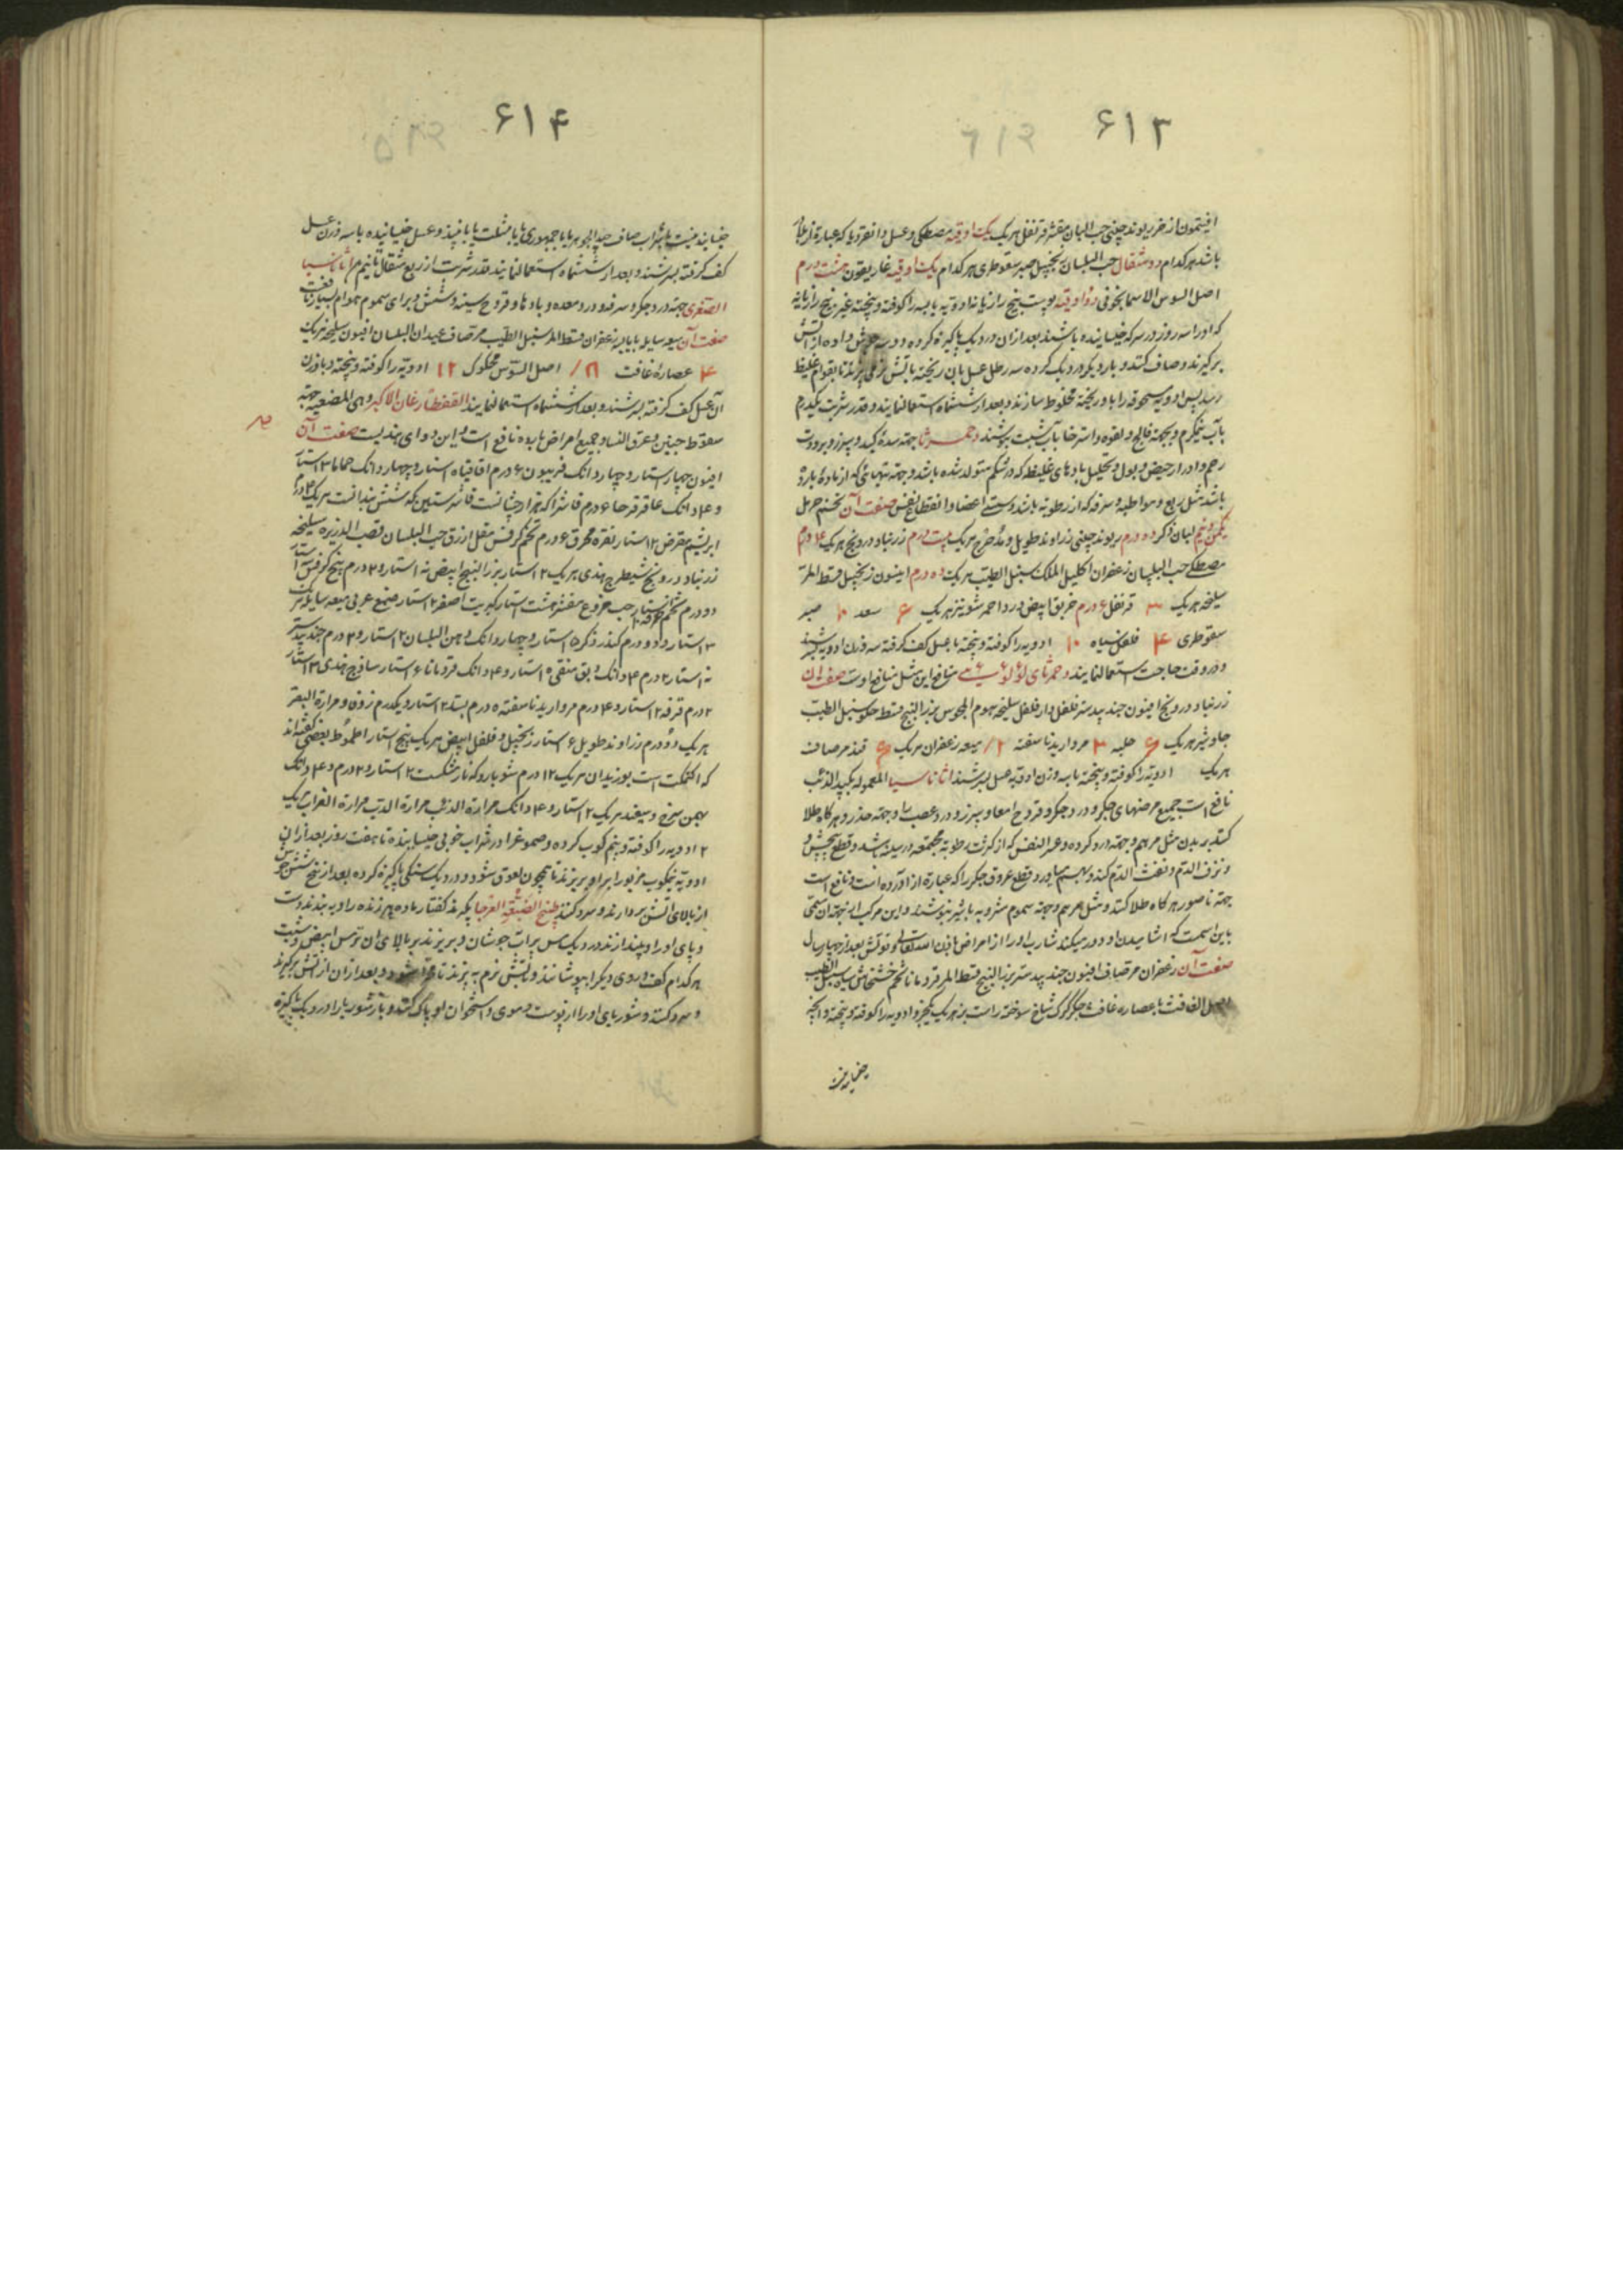 ۶۱۳
افیتمون از هر ریوند چینی حب البان مقشر قرنفل هریک یک اوقیه مصطکی و عسل و انقردیا که عبارة از بلادر
باشد هرکدام دو مثقال حب البلسان زنجبیل صبر سقوطری هرکدام یک اوقیه غاریقون هشت درم
اصل السوس الاسمانجونی دو اوقیه پوست بیخ رازیانه ادویه یابسه را کوفته و پیخته غیر بیخ رازیانه
که او را سه روز در سرکه خیسانیده باشند بعد از ان در دیک پاکیزه کرده دو سه جوش داده از اتش
برگیرند و صاف کنند و بار دیگر در دیک کرده سه رطل عسل بان ریخته باتش نرم بپزند تا بقوام غلیظ
رسد پس ادویه مسحوقه را باو ریخته مخلوط سازند و بعد از ششماه استعمال نمایند و قدر شربت یکدرم
بآب نیمگرم و بجهته فالج و لقوه و استرخا بآب شبت بنوشند دحمرثا جهته سدهٔ کبد و سپرز و برودت
رحم و ادرار حیض و بول و تحلیل بادهای غلیظه که در شکم متولد شده باشد و جهته تبهائی که از مادهٔ بارد
باشد مثل ربع و مواظبه و سرفه که از رطوبه باشد و سستی اعضا و انقطاع نفس صفت آن تخم حرمل
لبان ذکر ده درم ریوند چینی زراوند طویل و مدحرج هریک بیست درم زرنباد درونج هریک ۱۴ درم
مصطکی حب البلسان زعفران اکلیل الملک سنبل الطیب هریک ده درم انیسون زنجبیل قسط المر
سلیخه هریک ۳ قرنفل ۶ درم خربق ابیض ورد احمر شونیز هریک ۶ سعد ۱۰ صبر
سقوطری ۴ فلفل سیاه ۱۰ ادویه را کوفته و پیخته با عسل کف گرفته سه وزن ادویه بسرشند
و در وقت حاجت استعمال نمایند دحمرثای لؤلؤئی منافع این مثل منافع اوست صفت ان
زرنباد درونج افیون جند بیدستر فلفل دار فلفل سلیخه هوم المجوس بزر البنج قسط حلو سنبل الطیب
جاوشیر هریک ۶ حلبه ۳ مروارید ناسفته ۲ میعه زعفران هریک قنه مر صاف
هریک ادویه را کوفته و پیخته با سه وزن ادویه عسل بسرشند اثاناسیا المعموله بکبد الذئب
نافع است جمیع مرضهای جگر و درد جگر و قروح امعا و سپرز و درد عصب و جهته خدر و هرگاه طلا
کنند بر بدن مثل مرهم و جهته درد کرده و عسر النفس که از کثرت رطوبه مجتمعه در سینه باشد و قطع پیچش و
و نزف الدم و نفث الدم کند و قطع عروق جگر را که عبارة از آورده است و نافع است
جهته ناصور هرگاه طلا کنند مثل مرهم و جهته سموم مشروبه با شیر بنوشند و این مرکب از بهر ان مسمی
باین اسمست که اشامیدن او دور میکند شارب او را از امراض باذن الله تعالی و قوتش بعد از چهار سال
صفت آن زعفران مر صاف افیون جند بیدستر بزر البنج قسط المر قردمانا تخم خشخاش سیاه سنبل الطیب
اصل الغافت یا عصاره غافت جگر گرگ شاخ سوخته راست بز هریک یکجزو ادویه را کوفته و پیخته و انچه
خیسانیدنی
۶۱۴
خیسانیدنیست با شراب صاف جید الجوهر یا با جمهوری یا با مثلث یا با نبیذ و عسل خیسانیده با سه وزن عسل
کف گرفته بسرشند و بعد از ششماه استعمال نمایند قدر شربت از ربع مثقال تا نیم درم اثاناسیا
الصغری جهته درد جگر و سرفه و درد معده و بادها و قروح سینه و شش و برای سموم هوام بسیار نافعست
صفت آن میعه سایله یا یابسه زعفران قسط المر سنبل الطیب مر صاف عیدان البلسان افیون سلیخه هریک
۴ عصارهٔ غافت ۸ اصل السوس محکوک ۱۲ ادویه را کوفته و پیخته و با وزن
آن عسل کف گرفته بسرشند و بعد از ششماه استعمال نمایند القفطارغان الاکبر و هی المضعیه جهته
سقوط جنین و عرق النسا و جمیع امراض بارده نافع است و این دوای هندیست صفت آن
افیون چهار استار و چهار دانک فربیون ۶ درم اقاقیا ۵ استار و چهار دانک حماما ۳ استار
و ۴ دانک عاقرقرحا ۶ درم فاشرا که هزارجشانست فاشرستین که ششبندانست هریک ۴ درم
ابریشم مقرض ۲ استار نقره محرق ۶ درم تخم کرفس مقل ازرق حب البلسان قصب الذریره سلیخه
زرنباد درونج شیطرج هندی هریک ۲ استار بزر البنج ابیض نه استار و ۲ درم بیخ کرفس ۳ استار
دو درم حب خروع مقشر هشت استار کبریت اصفر ۲ استار صمغ عربی میعه سایله هریک
۳ استار و دو درم کندر ذکر ۵ استار و چهار دانک دهن البلسان ۲ استار و ۲ درم جند بیدستر
نه استار ۲ درم ۴ دانک دبق منقی ۵ استار و ۴ دانک قردمانا ۶ استار ساذج هندی ۳ استار
۲ درم قرفه ۲ استار و ۴ درم مروارید ناسفته ۵ درم بسد ۲ استار و یکدرم زوفا و مرارة البقر
هریک دو درم زراوند طویل ۶ استار زنجبیل و فلفل ابیض هریک پنج استار اطموط بعضی گفته‌اند
که اکتمکت است بوزیدان هریک ۱۲ درم ۲ استار و ۲ درم و ۴ دانک
بهمن سرخ و سفید هریک ۲ استار و ۴ دانک مرارة الذئب مرارة الدب مرارة الغراب هریک
۲ ادویه را کوفته و نیم کوب کرده و صموغ را در شراب خوبی خیسانیده تا هفت روز بعد از ان
ادویه نیمکوب مزبور را بر او بریزند تا همچون لعوق شود و در دیک سنگی پاکیزه کرده بعد از شش جوش
از بالای اتش بردارند و سرد کنند طبیخ الضبعة العرجا بگیرند کفتار ماده پیر زنده را و به بندند دست
و پای او را و بیندازند در دیک مس پر اب جوشان و بریزند بر بالای ان ترمس ابیض و شبت
هرکدام کفی و روی دیک را بپوشانند و باتش نرم به پزند تا مهرا شود و بعد از ان از اتش برگیرند
و سرد کنند و شوربای او را از پوست و موی و استخوان او پاک کنند و باز شوربا را در دیک پاکیزه